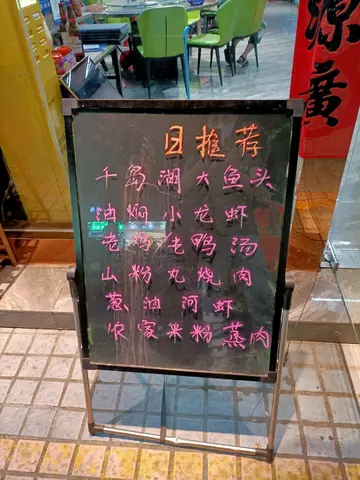 日推荐
千岛湖大鱼头
油焖小龙虾
老鸭汤
山粉丸烧肉
葱油河虾
农家米粉蒸肉
源廣